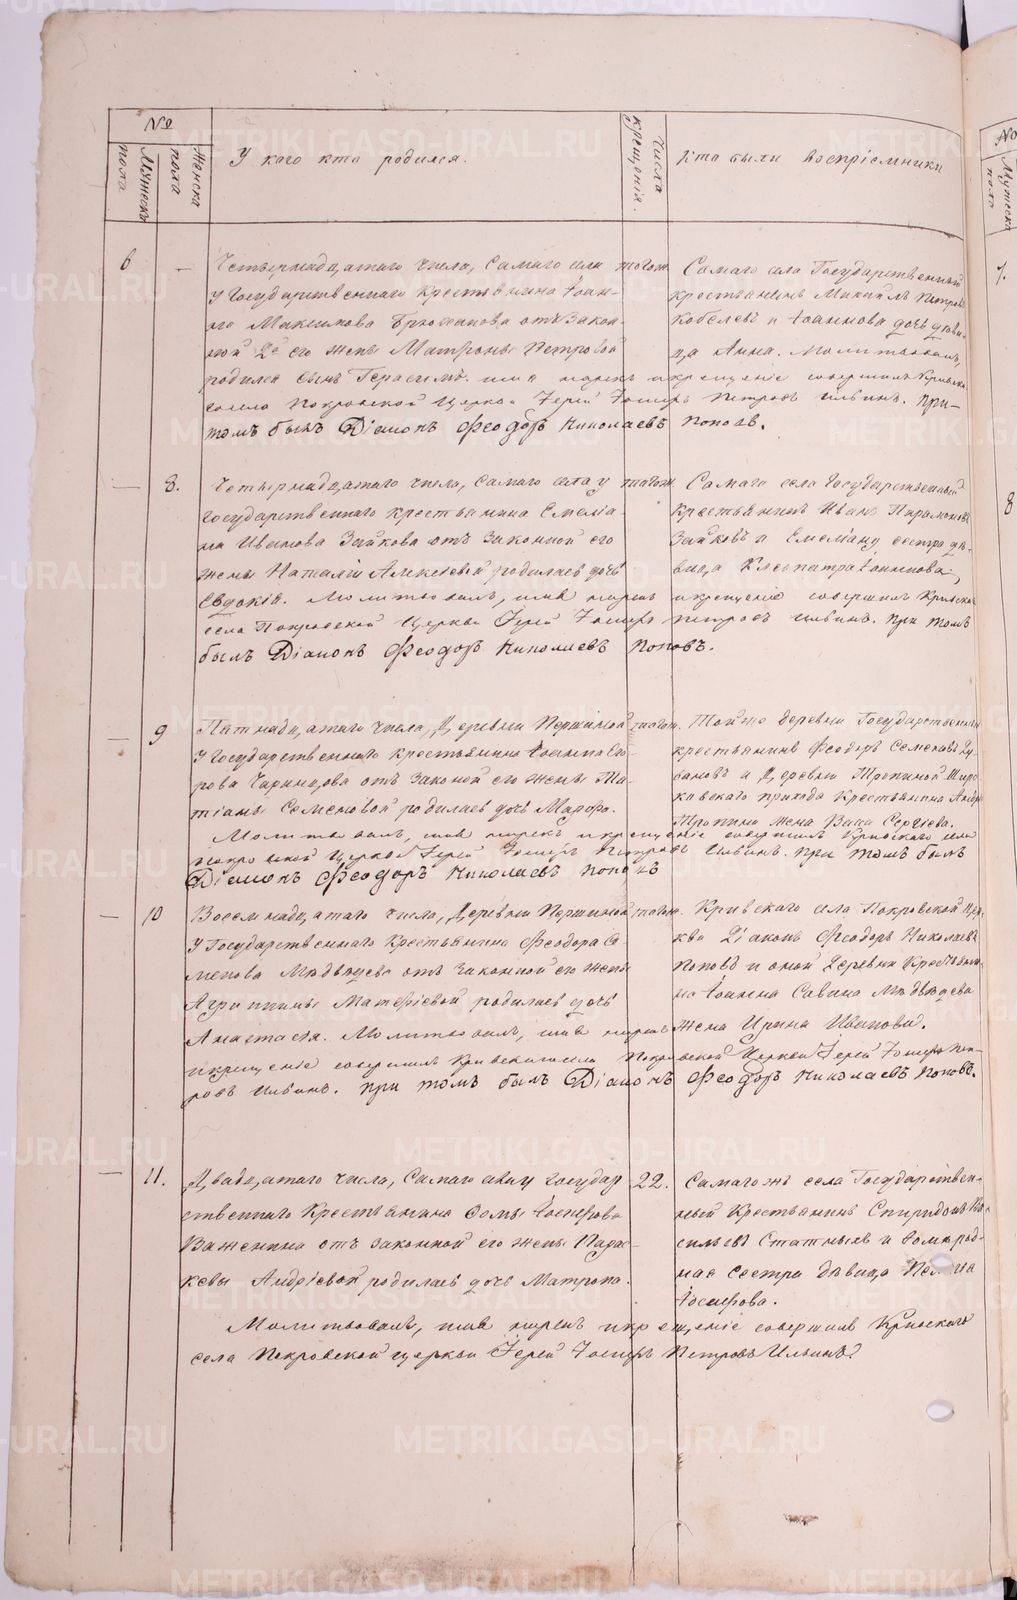 №
Мужеска пола
Женска пола
У кого кто родился.
Числа крещенія.
Кто были воспріемники
6 —
Четырнадцатаго числа, Самаго села
У Государственнаго Крестьянина Іоан-
на Максимова Брюханова отъ закон-
ной 2й его жены Матроны Петровой
родился сынъ Герасимъ. имя нарекъ и крещеніе совершилъ Кривска-
го села Покровской Церкви Іерей Іосифъ Петровъ Ильинъ. При-
томъ былъ Діаконъ Феодоръ Николаевъ Поповъ.
тогож.
Самаго села Государственный
Крестьянинъ Михаилъ Петровъ
Кобелевъ и Іоаннова дочь дѣви-
ца Анна. Молитвовалъ,
— 8.
Четырнадцатаго числа, Самаго села у
Государственнаго крестьянина Емеліа-
на Иванова Зайкова отъ законной его
жены Наталіи Алексіевой родилась дочь
Евдокія. Молитвовалъ, имя нарекъ и крещеніе совершилъ Кривскаго
села Покровской Церкви Іерей Іосифъ Петровъ Ильинъ. При томъ
былъ Діаконъ Феодоръ Николаевъ Поповъ.
тогож.
Самаго села Государственный
Крестьянинъ Иванъ Парамоновъ
Зайковъ и Емеліану сестра дѣ-
вица Клеопатра Іоаннова,
— 9
Пятнадцатаго числа, Деревни Першиной
У Государственнаго крестьянина Іоанна
отъ законой его жены Та-
тіаны Семеновой родилась дочь Марфа.
Молитвовалъ, имя нарекъ и крещеніе совершилъ Кривскаго села
Покровской Церкви Іерей Іосифъ Петровъ Ильинъ. При томъ былъ
Діаконъ Феодоръ Николаевъ Поповъ
тогож.
Тойже деревни Государственный
крестьянинъ Феодоръ Семеновъ
и Деревни Тропиной
прихода Крестьянина
Тропина жена Сергіева.
— 10
Восемнадцатаго число, Деревни Першиной
У Государственнаго Крестьянина Феодора Се-
менова Медведева отъ законной его жены
Агрипины Матфіевой родилась дочь
Анастасія. Молитвовалъ, имя нарекъ
и крещеніе совершилъ Кривскаго села Покровской Церкви Іерей Іосифъ Пет-
ровъ Ильинъ. При томъ былъ Діаконъ Феодоръ Николаевъ Поповъ.
тогож.
Кривскаго села Покровской Цер-
кви Діаконъ Феодоръ Николаевъ
Поповъ и оной Деревни Крестьяни-
на Іоанна Савина Медведева
жена Ирина Иванова.
— 11.
Двадцатаго числа, Самаго села у Государ
ственнаго Крестьянина Фомы Іосифова
Важенина отъ законной его жены Парас-
кевы Андріевой родилась дочь Матрона.
Молитвовалъ, имя нарекъ и крещеніе совершилъ Кривскаго
села Покровской Церкви Іерей Іосифъ Петровъ Ильинъ.
22.
Самагожъ села Государствен-
ный Крестьянинъ Спиридонъ Ва-
сильевъ и Фомы род-
ная сестра дѣвица
Іосифова.